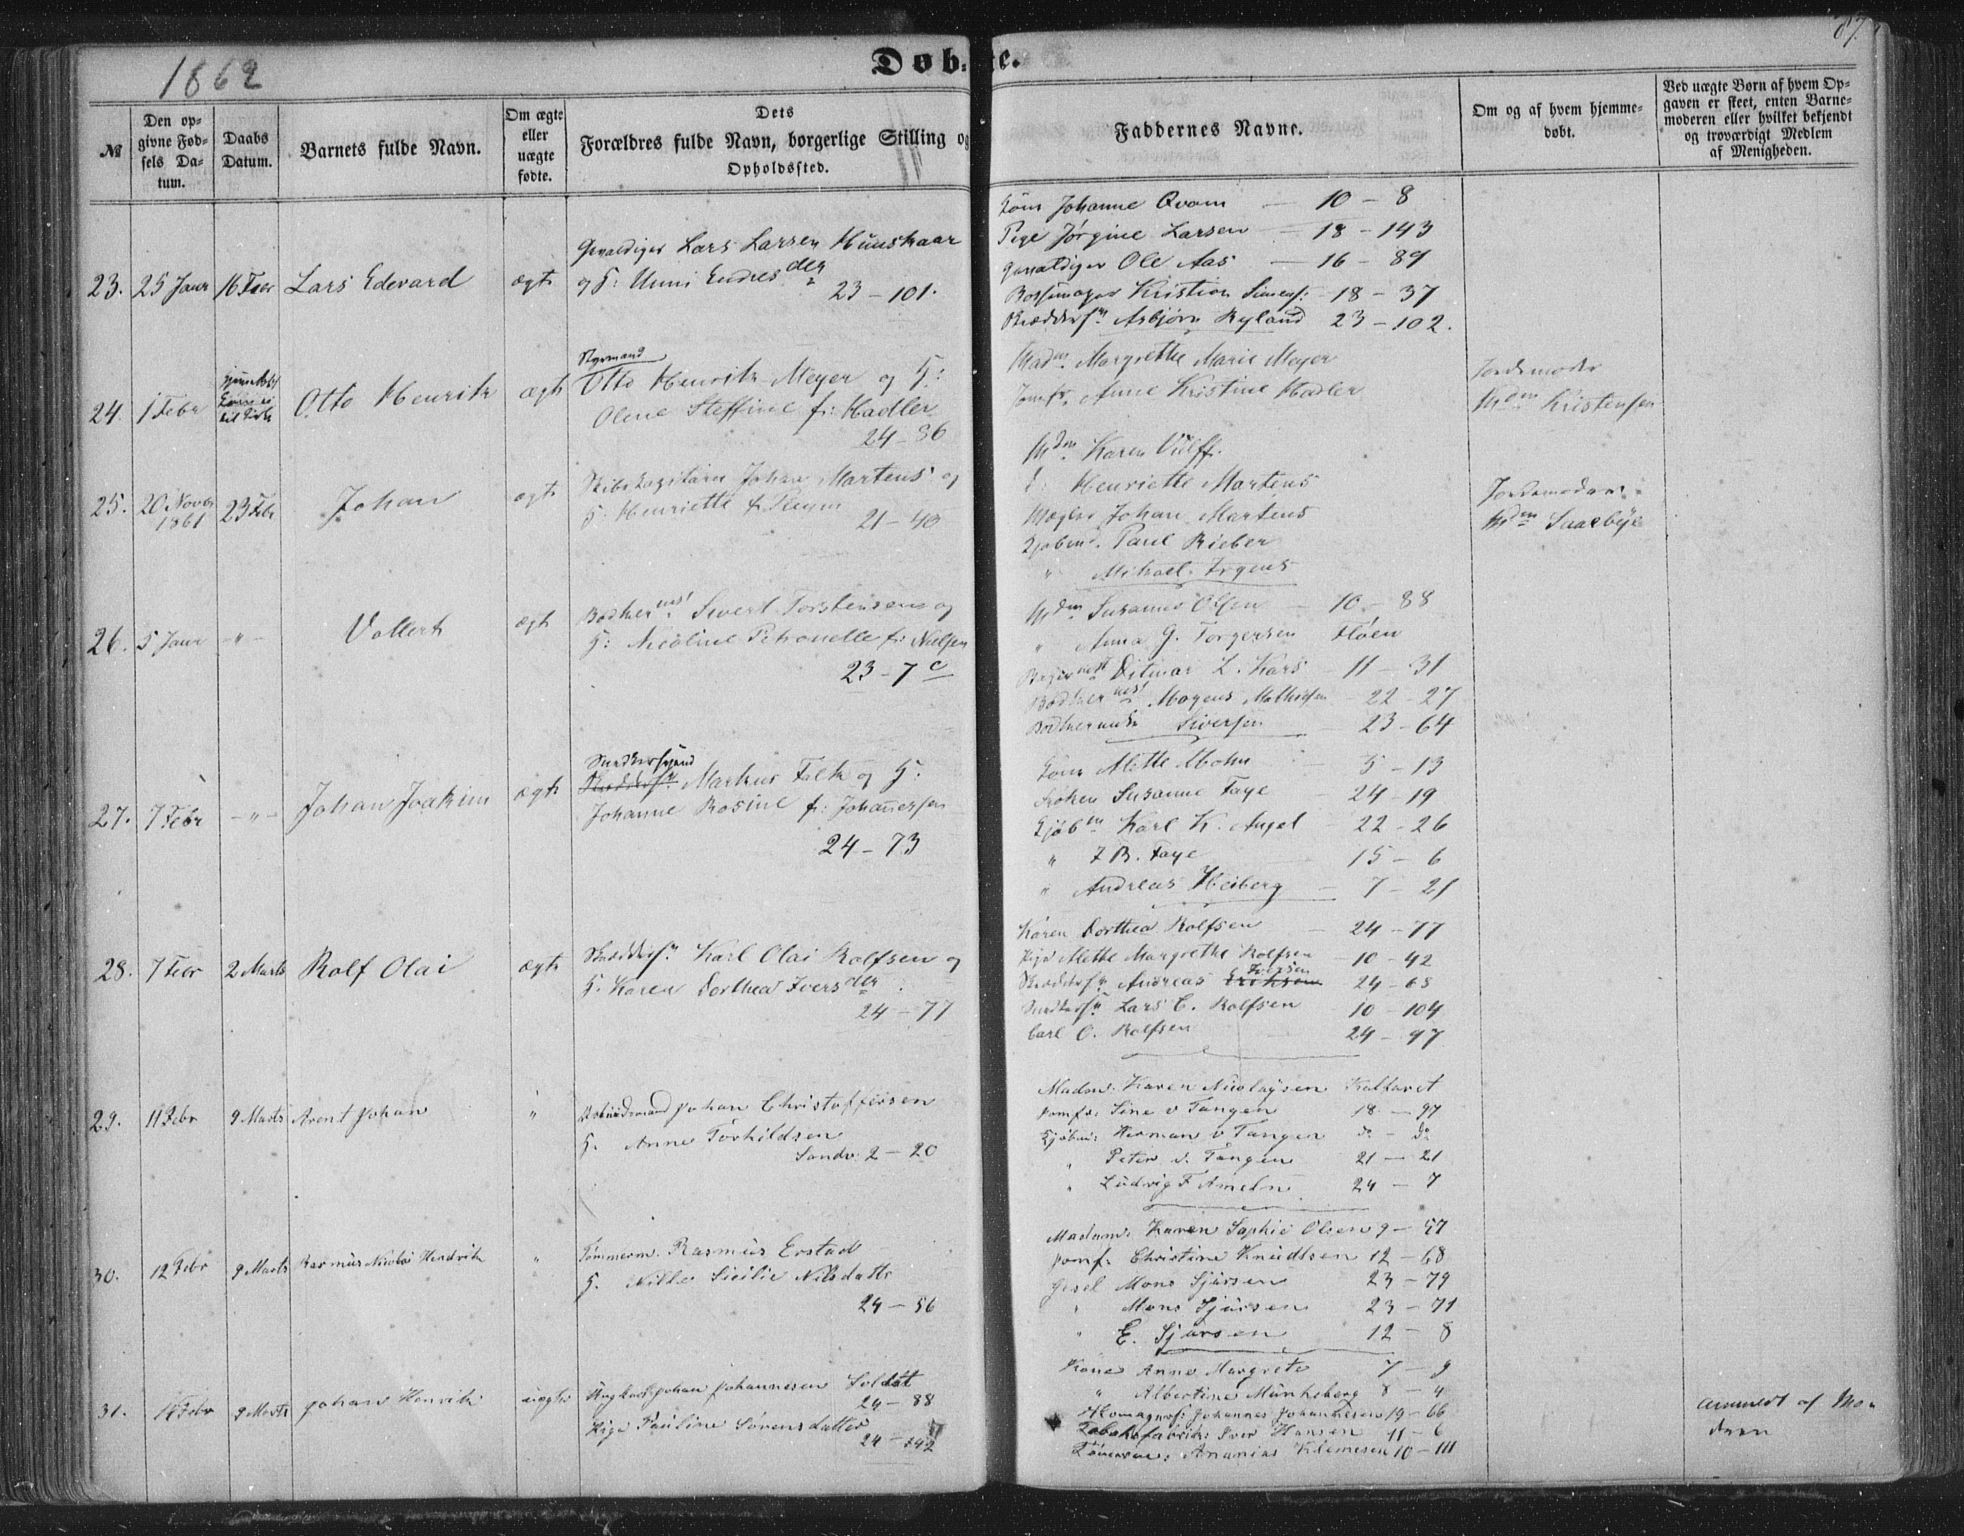 1862
Døbte.
87.
№
Den op-
givne Fød-
sels Da-
tum.
Daabs
Datum.
Barnets fulde Navn.
Om ægte
eller
uægte
fødte.
Dets
Forældres fulde Navn, borgerlige Stilling og
Opholdssted.
Faddernes Navne.
Om og af hvem hjemme-
døbt.
Ved uægte Børn af hvem Op-
gaven er skeet, enten Barne-
moderen eller hvilket bekjendt
og troværdigt Medlem
af Menigheden.
23. 25 Janr 16 Febr Lars Edevard ægte
Gevaldiger Lars Larsen Hunskaar
og H: Unni Endresdtr
23 - 101.
Kone Johanne Qvam - 10 - 8
Pige Jørgine Larsen - 18 - 143
Gevaldiger Ole Aas - 16 - 89
Kristian Simens: - 18 - 37
Asbjørn Ryland 23 - 102.
24. 1 Febr Otto Henrik ægte
Styrmand
Otto Henrik Meyer og H:
Olene Steffine f: Hadler
24 - 86
Madm. Margrethe Marie Meyer
Jomfr. Anne Kristine Hadler
Jordemoder
Mdm Kristensen
25. 20 Novbr 1861 23 Febr Johan ægte
Skibskapitain Johan Martens og
H. Henriette f.
21 - 40
Mdm Karen Vulff.
Henriette Martens
Mægler Johan Martens
Kjøbmd. Paul Rieber
" Mikael Irgens
Jordemoder
Mdm
26. 5 Janr - " - Vollert ægte
Bødkermst Sivert Torstensen og
H: Nicoline Petronelle f: Nielsen
23 - 7 c
Mdm Susanne Olsen - 10 - 88
" Anna G. Torgersen Fløen
Ditmar L. Kars - 11 - 31
Bødkermst Mogens Mathiesen - 22 - 27
Siversen - 23 - 64
27. 7 Febr - " - Johan Joakim ægte
Snedkersvend
Markus Falk og H.
Johanne Rosine f: Johannesen
24 - 73
Kone Alette Mohn 5 - 13
Frøken Susanne Faye - 24 - 19
Kjøbm Karl K. Angel 22 - 26
" F B. Faye 15 - 6
" Andreas Heiberg - 7 - 21
28. 7 Febr 2 Marts Rolf Olai ægte
Karl Olai Rolfsen og
H. Karen Dorthea Iversdtr.
24 - 77
Karen Dorthea Rolfsen - 24 - 77
Pige Mette Margrethe Rolfsen - 10 - 42
Andreas Eriksen Iversen 24 - 68
Lars C. Rolfsen 10 - 104
Carl O. Rolfsen 24 - 97
29. 11 Febr 9 Marts Arent Johan "
Johan Christoffersen
H. Anne Torkildsen
Sandv: 2 - 20
Madm. Karen Nicolaysen Kalfaret
Jomfr: Sine v Tangen 18 - 97
Kjøbm: Herman v Tangen do - do
" Peter v. Tangen 21 - 21
" Ludvig F Ameln 24 - 7
30. 12 Febr 9 Marts Rasmus Nicolai Hendrik "
Tømmerm. Rasmus Erstad
H. Nille Sicilie Nilsdatter
24 - 56
Madam: Karen Sophie Olsen 9 - 57
Jomf: Christine Knudtsen 12 - 68
Gesel Mons Sjursen 23 - 79
" Mons Sjursen 23 - 71
" E. Sjursen 12 - 8
31. 14 Febr 9 Marts Johan Henrik uægte
Ungkarl Johan Johannesen Soldat
24 - 88
Pige Pauline Sørensdatter
24 - 142
Kone Anne Margrete 7 - 9
" Albertine Munkeberg 8 - 4
Johannes Johannesen 19 - 66
Tobaksfabrik: Iver Hansen 11 - 6
Tømerm: Ananias Klemesen 10 - 111
anmeldt af Mo-
deren